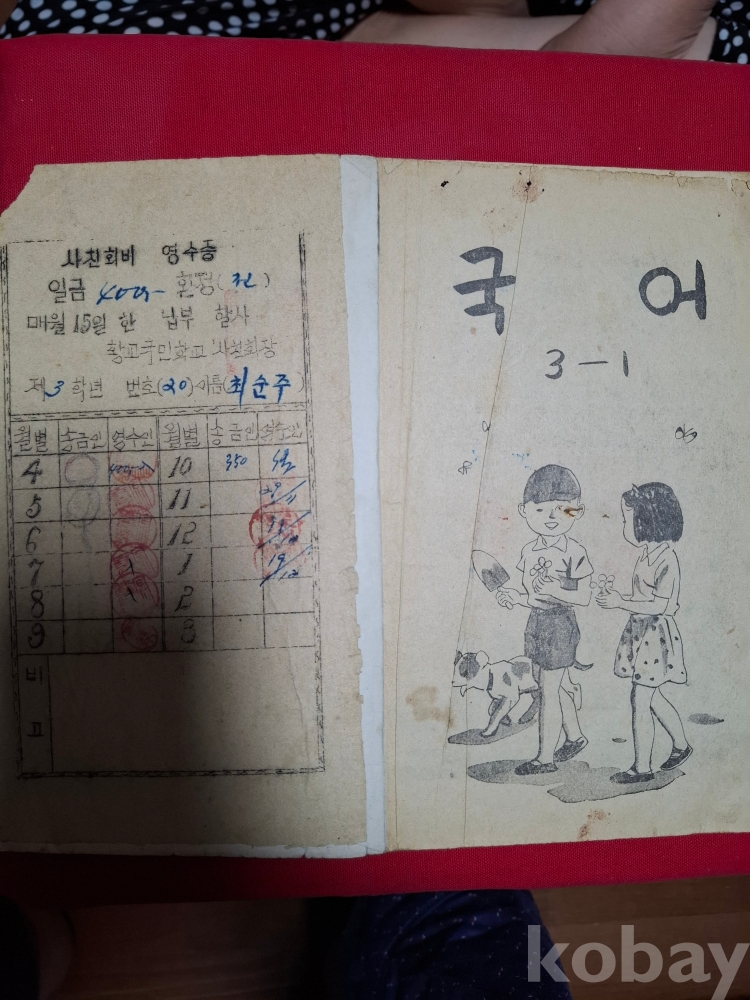 사친회비 영수증
일금 400 환정(전)
매월 15일 한 납부 할사
황교국민학교 사친회장
제3학년 번호(20) 이름(최순주)
월별 송금인 영수인 월별 송금인 영수인
4 10 350
5 11 29/11
6 12
7 1 19/12
8 2
9 3
비고
국 어
3-1
kobay